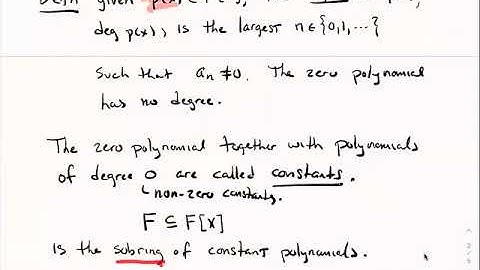 Defn given p(x)
deg p(x), is the largest n∈{0,1,...}
such that aₙ ≠ 0. The zero polynomial
has no degree.
The zero polynomial together with polynomials
of degree 0 are called constants.
non-zero constants.
F ⊆ F[x]
is the subring of constant polynomials.